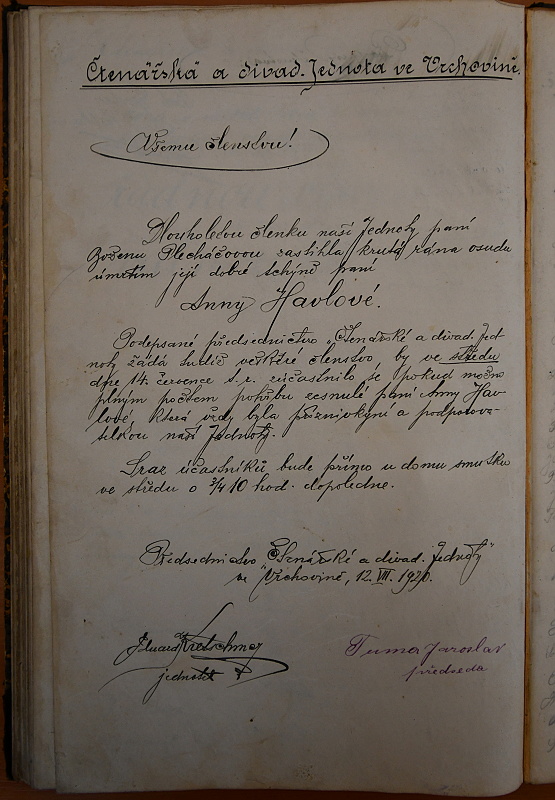 Čtenářská a divad. Jednota ve Vrchovině.
Všemu členstvu!
Dlouholetou členku naší Jednoty paní
Boženu Plecháčovou zastihla krutá rána osudu
úmrtím její dobré tchýně paní
Anny Havlové.
Podepsané předsednictvo „Čtenářské a divad. Jed-
noty žádá tudíž veškeré členstvo, by ve středu
dne 14. července t. r. zúčastnilo se pokud možno
plným počtem pohřbu zesnulé paní Anny Hav-
lové, která vždy byla příznivkyní a podporova-
telkou naší Jednoty.
Sraz účastníků bude přímo u domu smutku
ve středu o 3/4 10 hod. dopoledne.
Předsednictvo „Čtenářské a divad. Jednoty"
ve Vrchovině, 12. VII. 1920.
Eduard Kretschmer
jednatel
Tuma Jaroslav
předseda